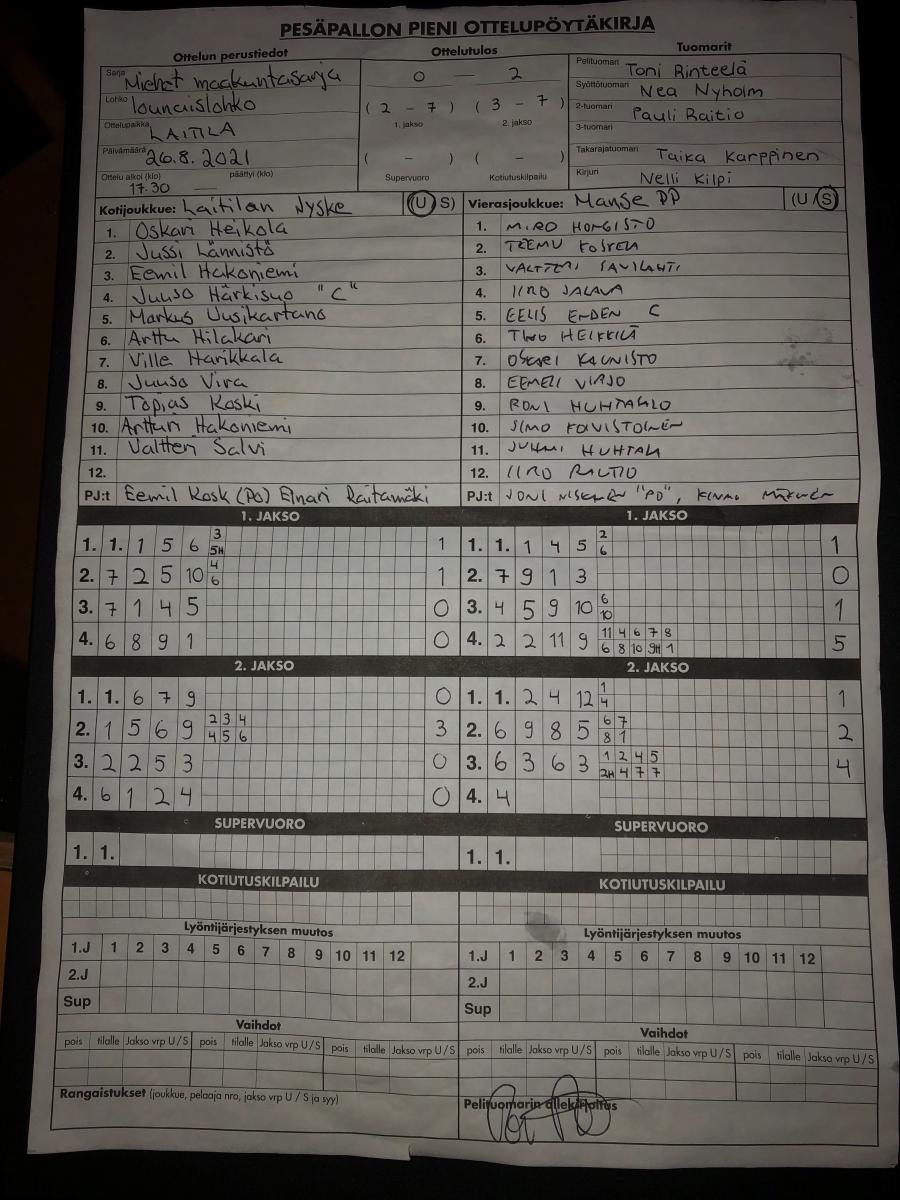 PESÄPALLON PIENI OTTELUPÖYTÄKIRJA
Ottelun perustiedot
Sarja Miehet maakuntasarja
Lohko lounaislohko
Ottelupaikka LAITILA
Päivämäärä 26.8.2021
Ottelu alkoi (klo) päättyi (klo)
17.30 —
Ottelutulos
0 — 2
( 2 - 7 ) ( 3 - 7 )
1. jakso 2. jakso
( - ) ( - )
Supervuoro Kotiutuskilpailu
Tuomarit
Pelituomari Toni Rinteelä
Syöttötuomari Nea Nyholm
2-tuomari Pauli Raitio
3-tuomari
Takarajatuomari Taika Karppinen
Kirjuri Nelli Kilpi
Kotijoukkue: Laitilan Jyske (U S)
1. Oskari Heikola
2. Jussi Lännistö
3. Eemil Hakoniemi
4. Juuso Härkisuo "C"
5. Markus Uusikartano
6. Arttu Hilakari
7. Ville Harikkala
8. Juuso Vira
9. Topias Koski
10. Artturi Hakoniemi
11. Valtteri Salvi
12.
PJ:t Eemil Kosk (PO) Elnari Raitamäki
Vierasjoukkue: Manse PP (U/S)
1. MIRO HONGISTO
2. TEEMU KOSKELA
3. VALTTERI SAVILAHTI
4. IIRO JALAVA
5. EELIS ENDEN C
6. TIMO HEIKKILÄ
7. OSKARI KAUNISTO
8. EEMELI VIRJO
9. RONI HUHTASALO
10. SIMO KOIVISTOINEN
11. JUHANI HUHTALA
12. IIRO RAUTIO
PJ:t JONI NISKANEN "PO",
1. JAKSO
1. 1. 1 5 6 3 1
5H
2. 7 2 5 10 4 1
6
3. 7 1 4 5 0
4. 6 8 9 1 0
2. JAKSO
1. 1. 6 7 9 0
2. 1 5 6 9 2 3 4 3
4 5 6
3. 2 2 5 3 0
4. 6 1 2 4 0
SUPERVUORO
1. 1.
KOTIUTUSKILPAILU
1. JAKSO
1. 1. 1 4 5 2 1
6
2. 7 9 1 3 0
3. 4 5 9 10 6 1
10
4. 2 2 11 9 11 4 6 7 8 5
6 8 10 9H 1
2. JAKSO
1. 1. 2 4 12 1 1
4
2. 6 9 8 5 6 7 2
8 1
3. 6 3 6 3 1 2 4 5 4
2H 4 7 7
4. 4
SUPERVUORO
1. 1.
KOTIUTUSKILPAILU
Lyöntijärjestyksen muutos
1.J 1 2 3 4 5 6 7 8 9 10 11 12
2.J
Sup
Vaihdot
pois tilalle Jakso vrp U/S pois tilalle Jakso vrp U/S pois tilalle Jakso vrp U/S
Rangaistukset (joukkue, pelaaja nro, jakso vrp U / S ja syy)
Lyöntijärjestyksen muutos
1.J 1 2 3 4 5 6 7 8 9 10 11 12
2.J
Sup
Vaihdot
pois tilalle Jakso vrp U/S pois tilalle Jakso vrp U/S pois tilalle Jakso vrp U/S
Pelituomarin allekirjoitus